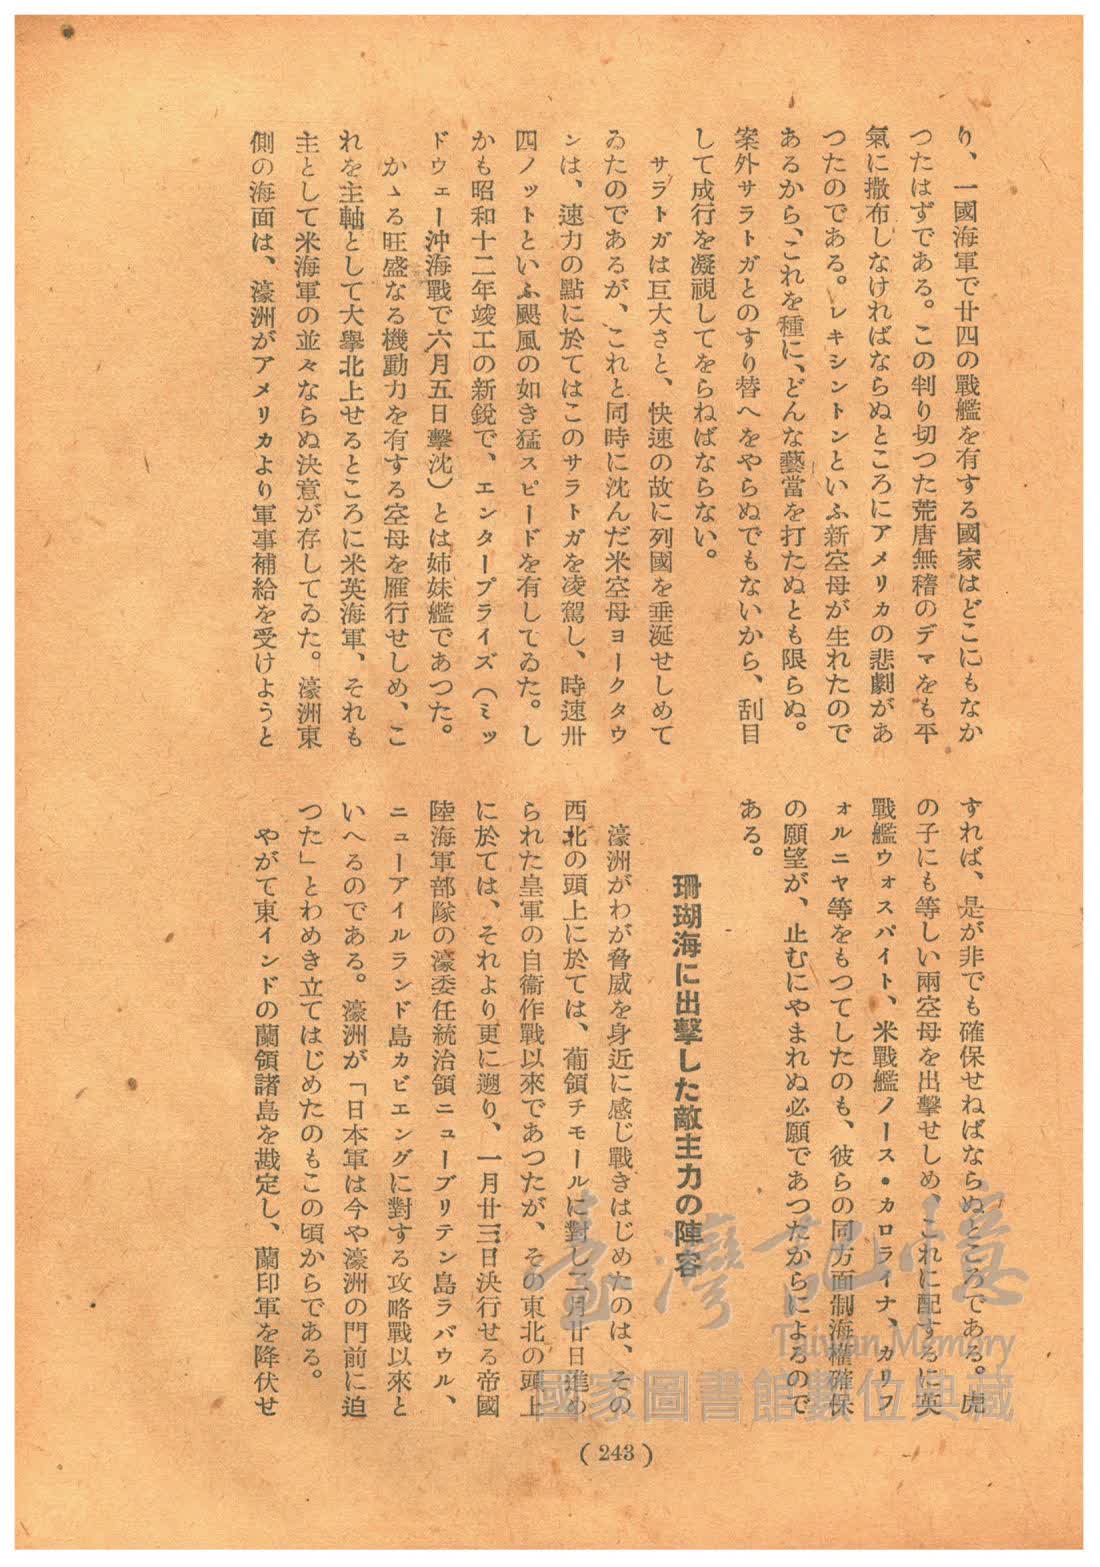 り、一國海軍で廿四の戰艦を有する國家はどこにもなか
つたはずである。この判り切つた荒唐無稽のデマをも平
氣に撒布しなければならぬところにアメリカの悲劇があ
つたのである。レキシントンといふ新空母が生れたので
あるから、これを種に、どんな藝當を打たぬとも限らぬ。
案外サラトガとのすり替へをやらぬでもないから、刮目
して成行を凝視してをらねばならない。
サラトガは巨大さと、快速の故に列國を垂涎せしめて
ゐたのであるが、これと同時に沈んだ米空母ヨークタウ
ンは、速力の點に於てはこのサラトガを凌駕し、時速卅
四ノットといふ颶風の如き猛スピードを有してゐた。し
かも昭和十二年竣工の新鋭で、エンタープライズ（ミッ
ドウェー沖海戰で六月五日擊沈）とは姉妹艦であつた。
かゝる旺盛なる機動力を有する空母を雁行せしめ、こ
れを主軸として大擧北上せるところに米英海軍、それも
主として米海軍の並々ならぬ決意が存してゐた。濠洲東
側の海面は、濠洲がアメリカより軍事補給を受けようと
すれば、是が非でも確保せねばならぬところである。虎
の子にも等しい兩空母を出擊せしめ、これに配するに英
戰艦ウォスパイト、米戰艦ノース・カロライナ、カリフ
ォルニヤ等をもつてしたのも、彼らの同方面制海權確保
の願望が、止むにやまれぬ必願であつたからによるので
ある。
珊瑚海に出擊した敵主力の陣容
濠洲がわが脅威を身近に感じ戰きはじめたのは、その
西北の頭上に於ては、葡領チモールに對し二月廿日進め
られた皇軍の自衞作戰以來であつたが、その東北の頭上
に於ては、それより更に遡り、一月廿三日決行せる帝國
陸海軍部隊の濠委任統治領ニューブリテン島ラバウル、
ニューアイルランド島カビエングに對する攻略戰以來と
いへるのである。濠洲が「日本軍は今や濠洲の門前に迫
つた」とわめき立てはじめたのもこの頃からである。
やがて東インドの蘭領諸島を戡定し、蘭印軍を降伏せ
(243)
臺灣記憶
Taiwan Memory
國家圖書館數位典藏